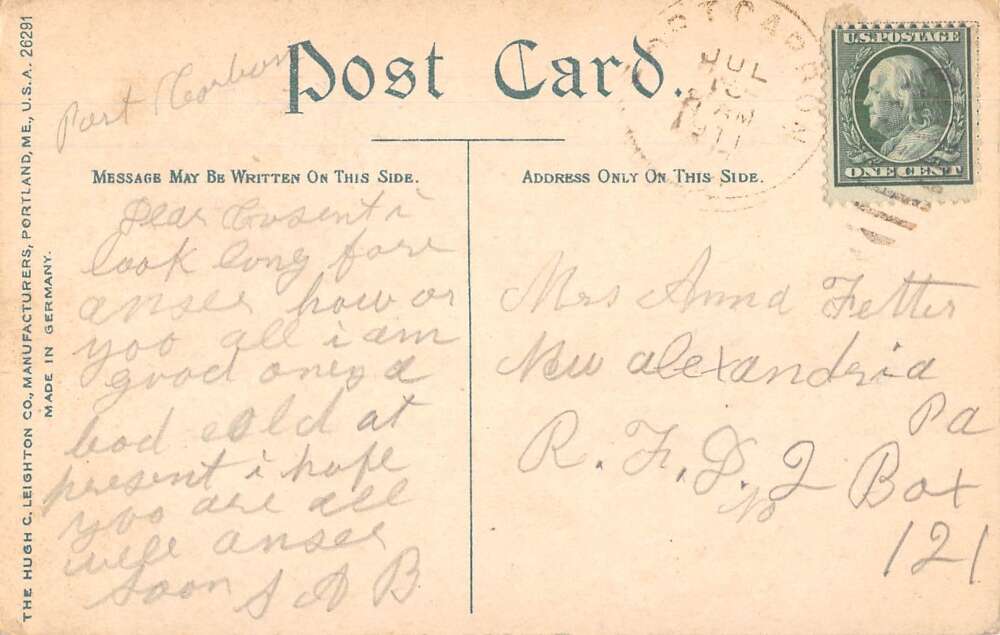 THE HUGH C. LEIGHTON CO., MANUFACTURERS, PORTLAND, ME., U.S.A. 26291
MADE IN GERMANY.
Port Carbon
Post Card.
PORT CARBON
JUL
AM
U.S. POSTAGE
ONE CENT
MESSAGE MAY BE WRITTEN ON THIS SIDE.
Dear Cosent i
look long fore
anser how or
yoo all i am
good only a
bad cold at
present i hope
yoo are all
well anser
soon S A B
ADDRESS ONLY ON THIS SIDE.
Mrs Anna Fetter
New alexandria
Pa
R. F. D. 2 Box
No
121